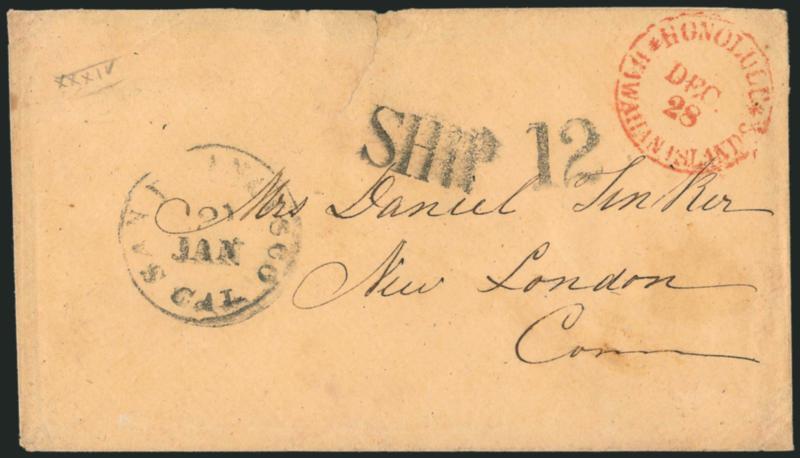 XXXIV
HONOLULU
HAWAIIAN ISLANDS
DEC.
28
SHIP 12
SAN FRANCISCO
CAL.
21
JAN
Mrs Daniel Tinker
New London
Conn